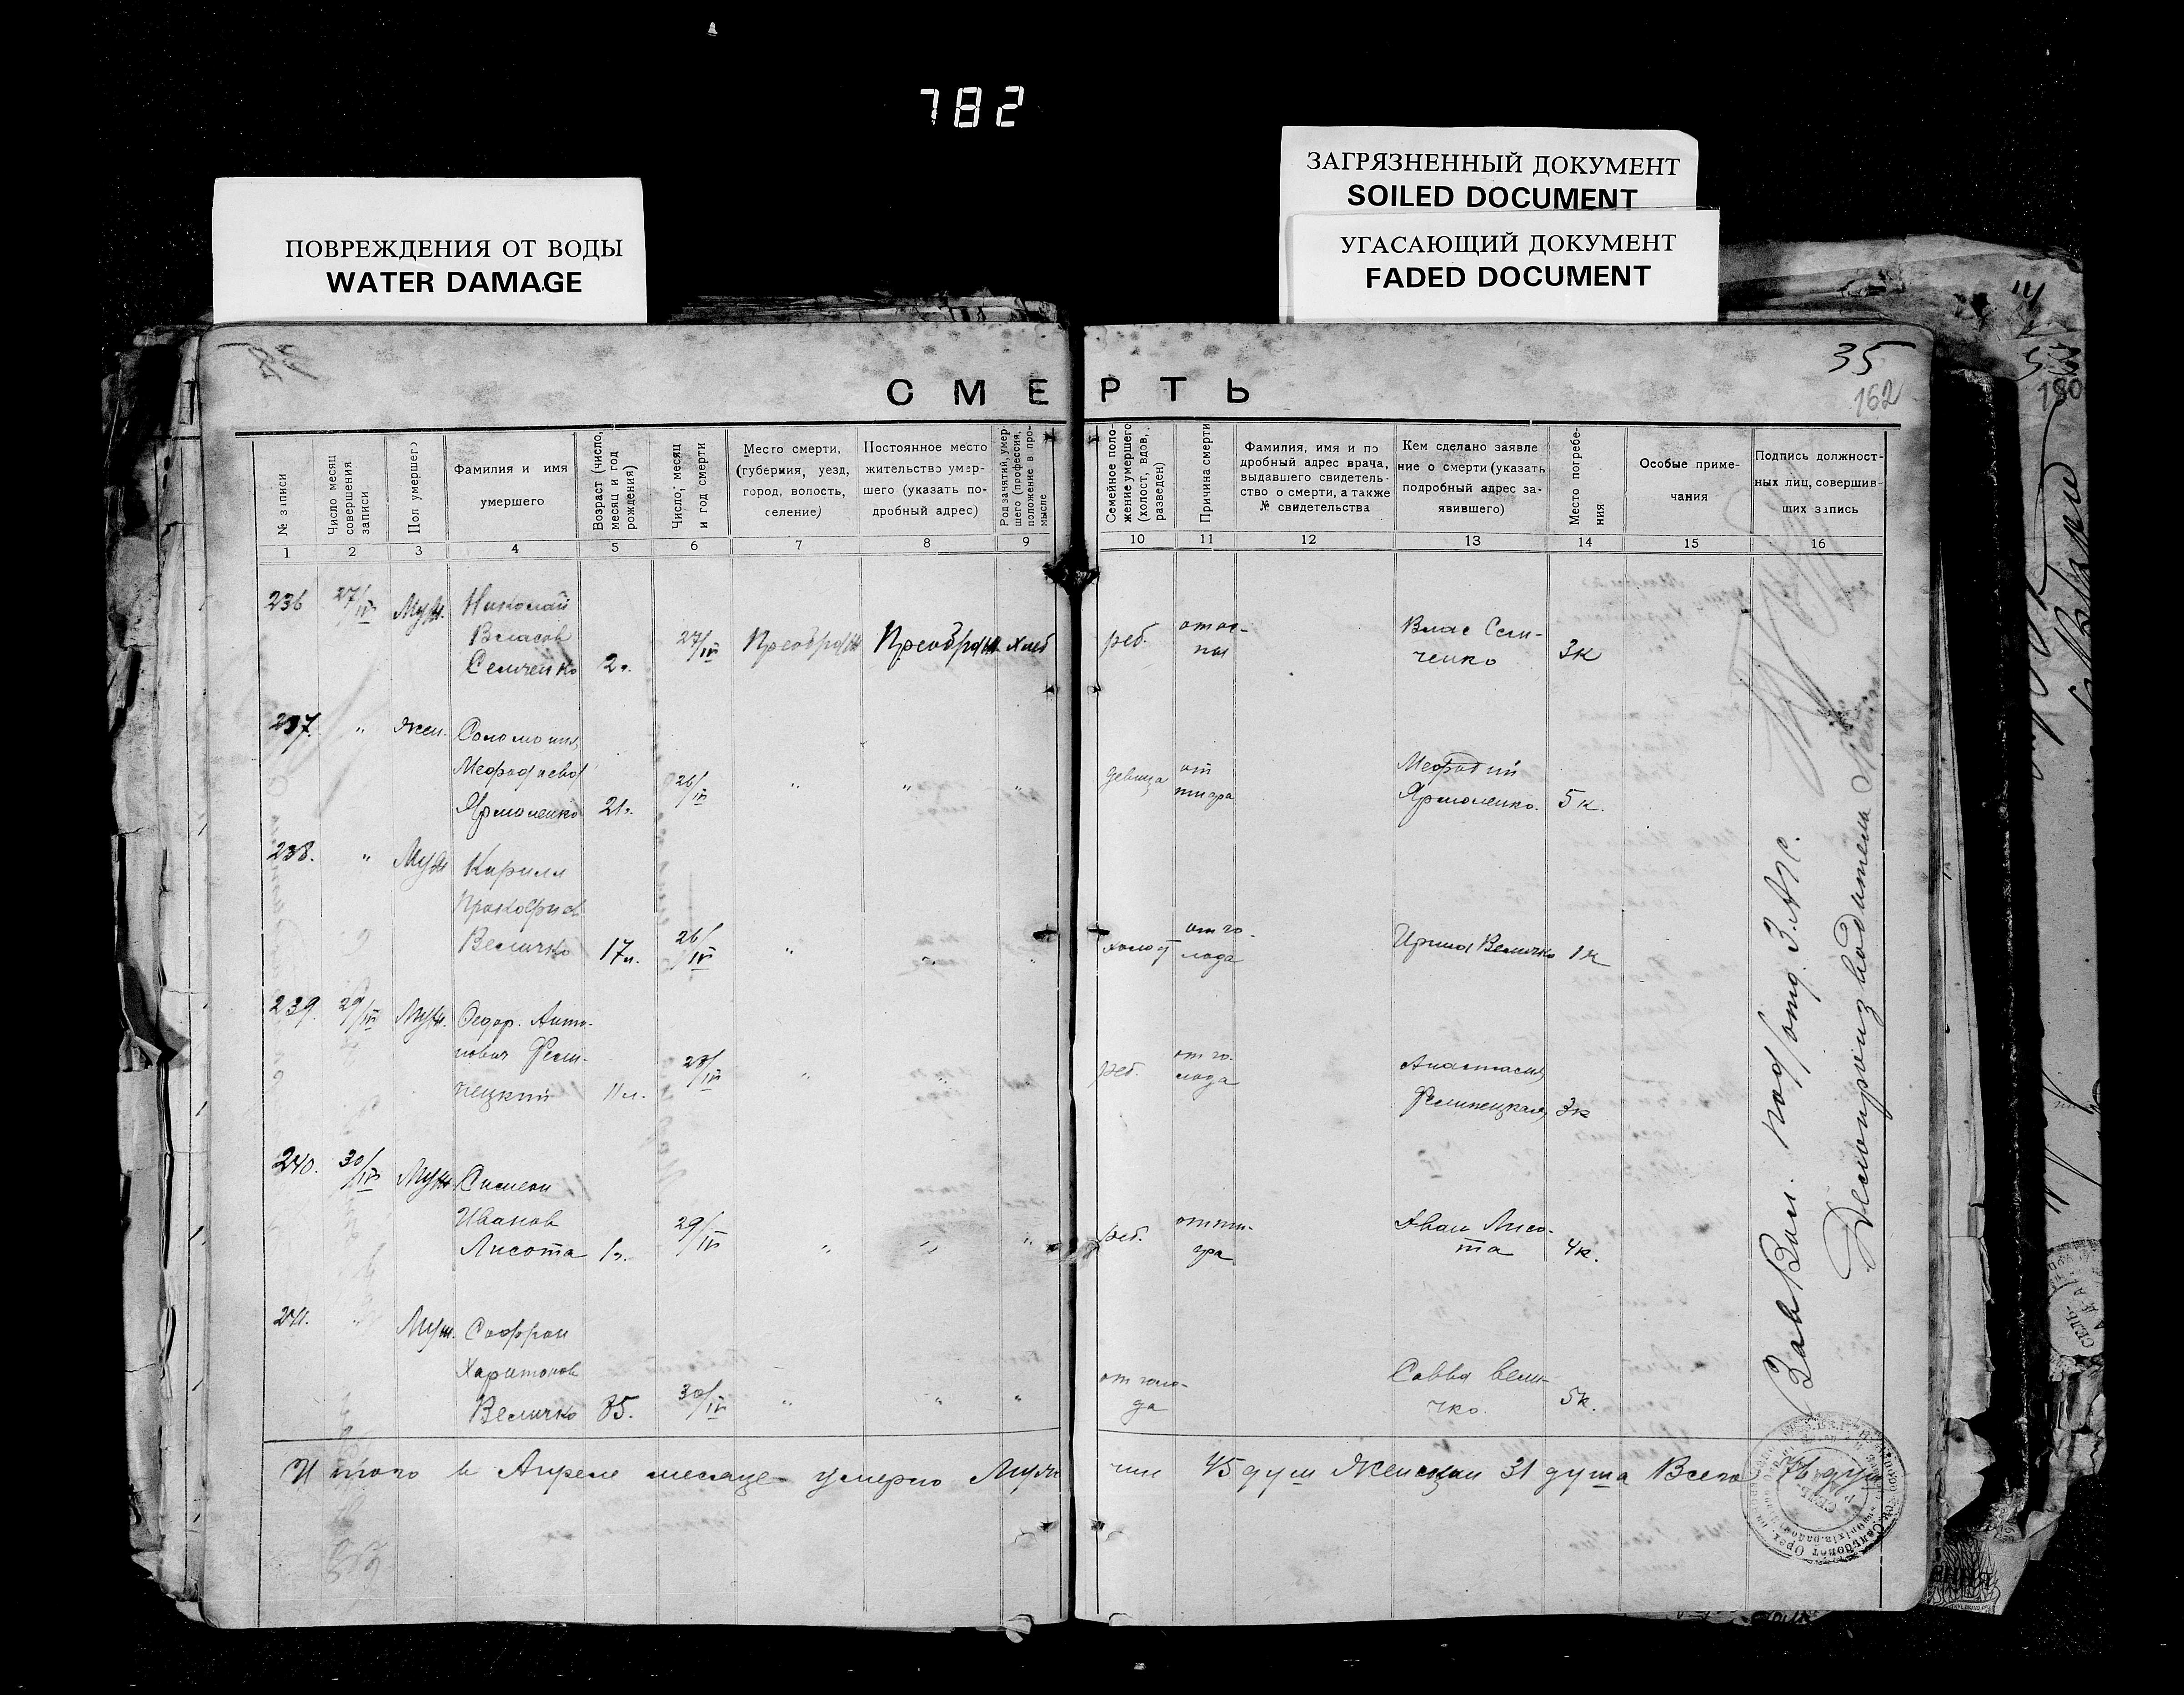 782
ПОВРЕЖДЕНИЯ ОТ ВОДЫ
WATER DAMAGE
ЗАГРЯЗНЕННЫЙ ДОКУМЕНТ
SOILED DOCUMENT
УГАСАЮЩИЙ ДОКУМЕНТ
FADED DOCUMENT
35
162
СМЕРТЬ
№ записи
Число месяц совершения записи
Пол умершего
Фамилия и имя умершего
Возраст (число, месяц и год рождения)
Число, месяц и год смерти
Место смерти, (губерния, уезд, город, волость, селение)
Постоянное место жительство умершего (указать подробный адрес)
Род занятий, умершего (профессия, положение в промысле
Семейное положение умершего (холост, вдов, разведен)
Причина смерти
Фамилия, имя и подробный адрес врача, выдавшего свидетельство о смерти, а также № свидетельства
Кем сделано заявление о смерти (указать подробный адрес заявившего)
Место погребения
Особые примечания
Подпись должностных лиц, совершивших запись
1 2 3 4 5 6 7 8 9 10 11 12 13 14 15 16
236 27/IV Муж. Николай
Власов
Семченко 2г. 27/IV Преображ Преображ хлеб реб. от ос-
пы Влас Сем-
ченко 3к
237. " Жен. Соломония
Мефодиева
Ярмоленко 21г. 26/IV " " " девица от
тифа Мефодий
Ярмоленко. 5к.
238. " Муж Кирилл
Прокофиев
Величко 17л. 26/IV " " " холост от го-
лода Ирина Величко 1к
239. 29/IV Муж. Федор. Анто-
нович
11л. 28/IV " " " реб. от го-
лода Анастасия
3к
240. 30/IV Муж Симеон
Иванов
Лисота 1г. 29/IV " " " реб. от ти-
фа Иван Лисо-
та 4к.
241. Муж. Софрон
Харитонов
Величко 35. 30/IV " " " от голо-
да Савва Вели-
чко. 5к.
Итого в Апреле месяце умерло Мужчин 45 душ Женщин 31 душа Всего 76 душ
Зав Вол. под/отд. З.А.Г.С.
Делопроизводитель